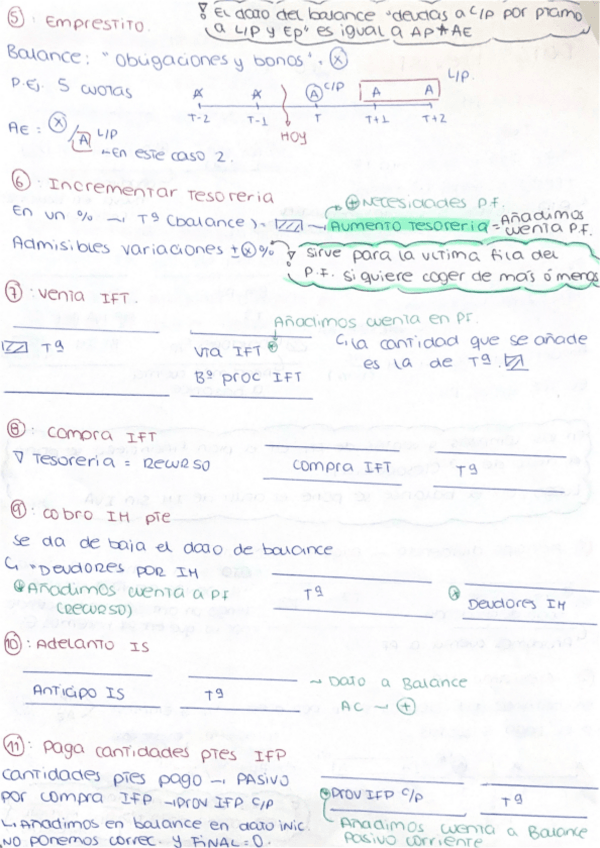 ⑤: EMPRESTITO.
∇ El dato del balance "deudas a C/P por ptamo
a L/P y Ep" es igual a AP*AE
Balance: "Obligaciones y bonos". ⓧ
P.Ej. 5 cuotas
A A Ⓐ C/P A A L/P.
T-2 T-1 T T+1 T+2
HOY
AE: ⓧ/A L/P
En este caso 2.
⑥: Incrementar Tesoreria
⊕ Necesidades P.F.
En un % → Tª (balance) · → Aumento Tesoreria = Añadimos cuenta P.F.
Admisibles variaciones ±ⓧ%
∇ sirve para la ultima fila del
P.F. si quiere coger de más ó menos
⑦: venta IFT.
Añadimos cuenta en PF.
Tª
Vta IFT ⊕
Bº proc IFT
la cantidad que se añade
es la de Tª.
⑧: compra IFT
∇ Tesoreria = RECURSO
compra IFT Tª
⑨: cobro IM pte
se da de baja el dato de balance
"DEUDORES POR IM
⊕ Añadimos cuenta a PF
(RECURSO)
Tª
⊕ Deudores IM
⑩: Adelanto IS
Anticipo IS Tª
→ Dato a Balance
AC → ⊕
⑪: Paga cantidades ptes IFP
cantidades ptes pago → PASIVO
por compra IFP → prov IFP C/P
⊕ prov IFP C/P Tª
Añadimos en balance en dato inic.
NO ponemos correc. y FINAL = 0.
Añadimos cuenta a Balance
Pasivo corriente